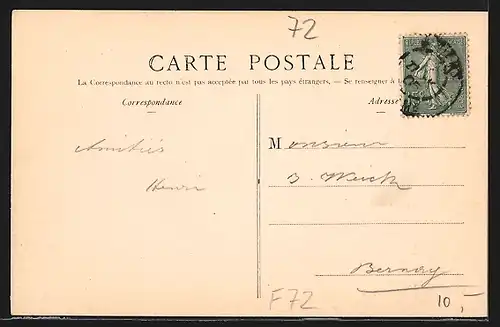 72
CARTE POSTALE
La Correspondance au recto n'est pas acceptée par tous les pays étrangers, — Se renseigner à
Correspondance
Adresse
Amitiés
Henri
Monsieur
Bernay
F72
10,-